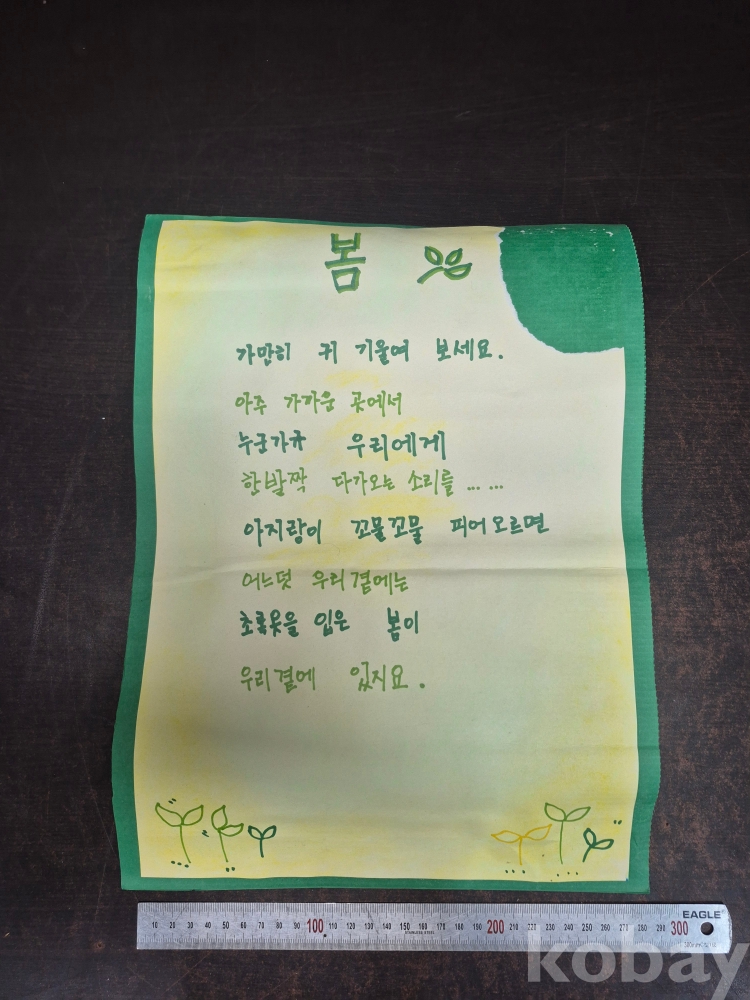 봄
가만히 귀 기울여 보세요.
아주 가까운 곳에서
누군가가 우리에게
한발짝 다가오는 소리를 ... ...
아지랑이 꼬물꼬물 피어오르면
어느덧 우리곁에는
초록옷을 입은 봄이
우리곁에 있지요.
EAGLE
10 20 30 40 50 60 70 80 90 100 110 120 130 140 150 160 170 180 190 200 210 220 230 240 250 260 270 280 290 300
STAINLESS STEEL
kobay